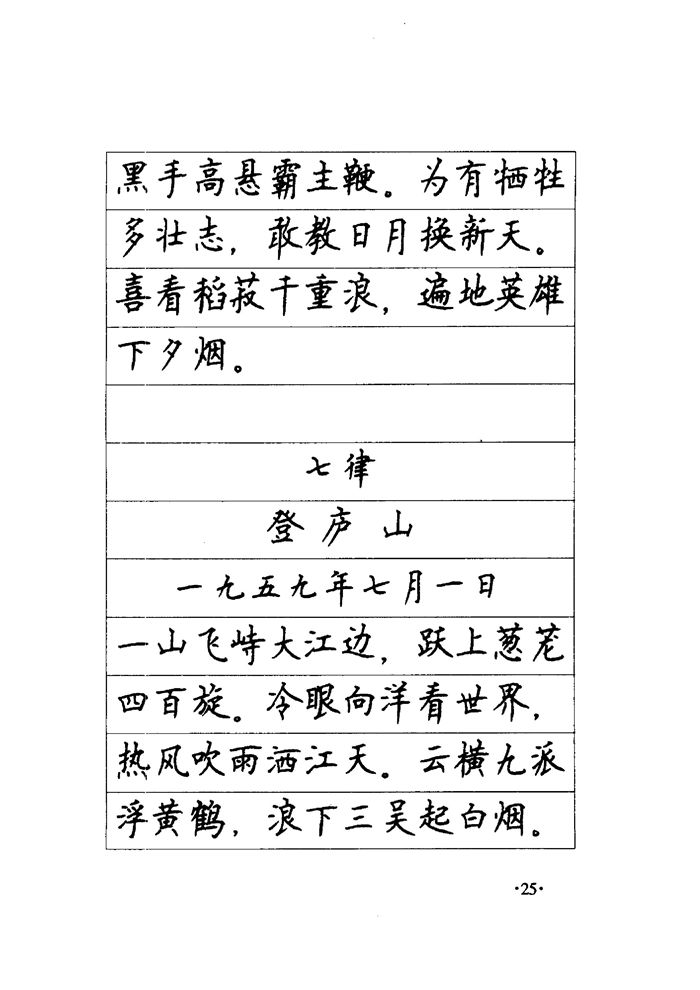 黑手高悬霸主鞭。为有牺牲
多壮志，敢教日月换新天。
喜看稻菽千重浪，遍地英雄
下夕烟。
七律
登庐山
一九五九年七月一日
一山飞峙大江边，跃上葱茏
四百旋。冷眼向洋看世界，
热风吹雨洒江天。云横九派
浮黄鹤，浪下三吴起白烟。
·25·